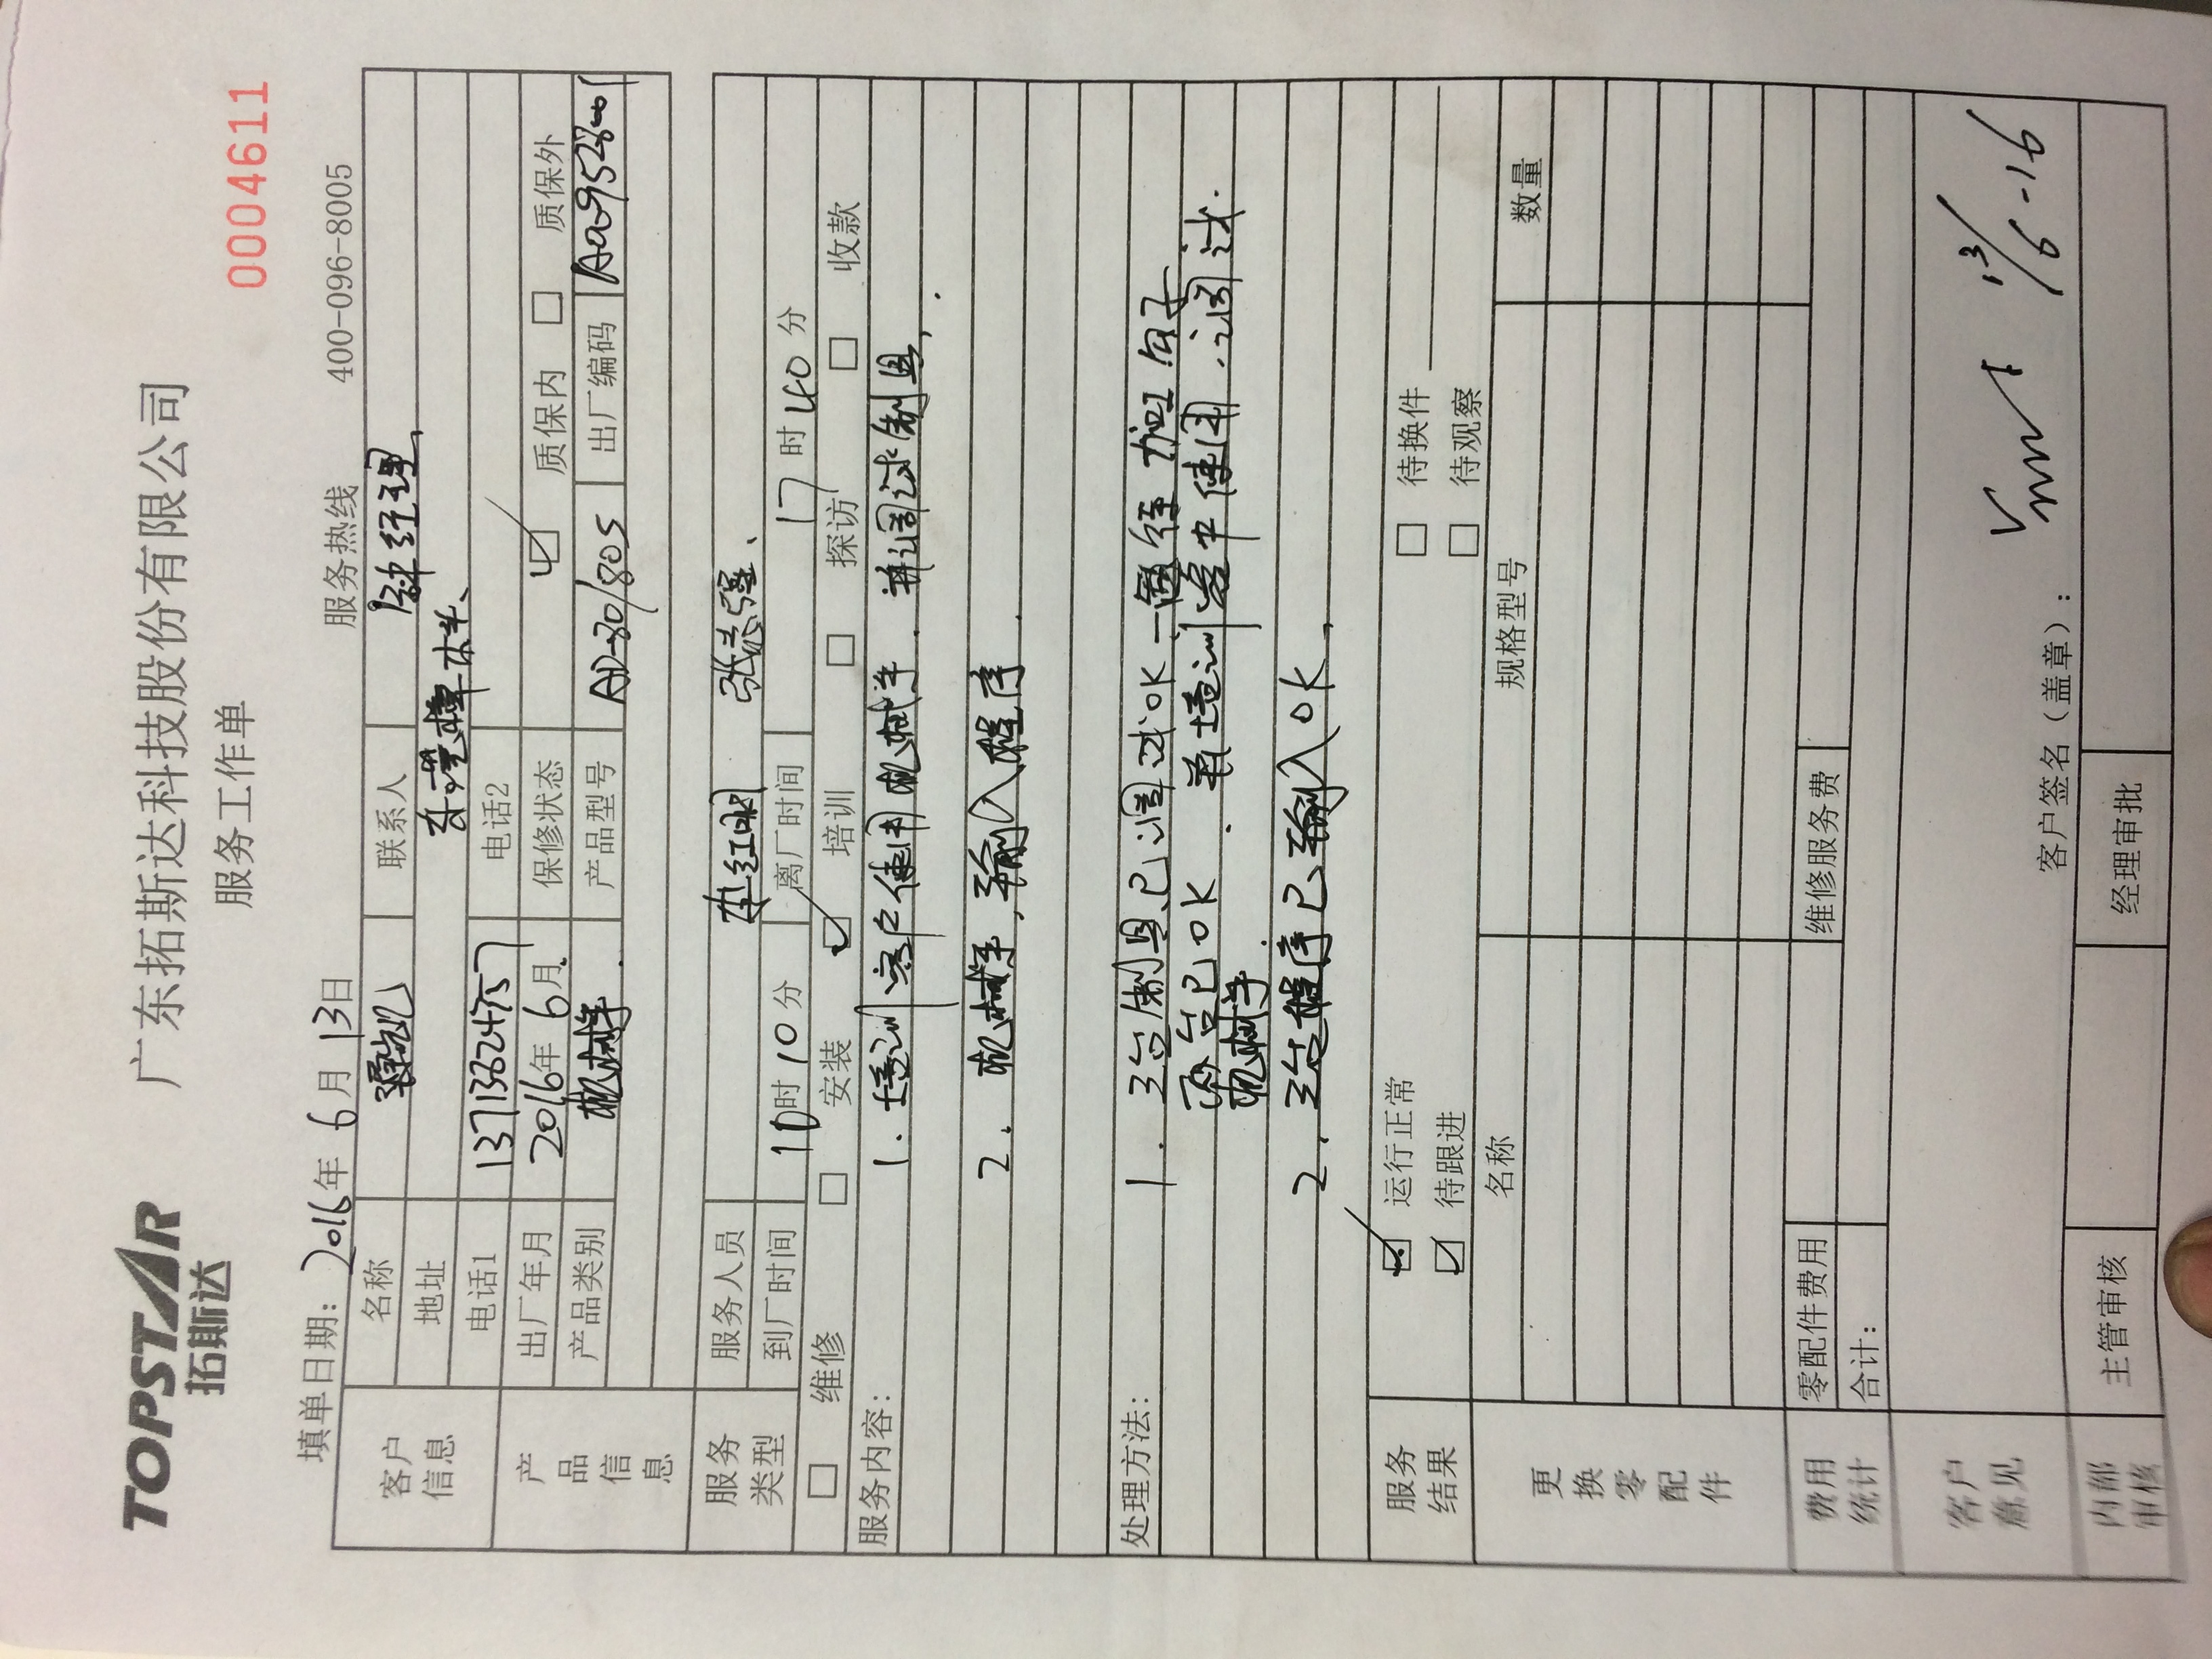 TOPSTAR
拓斯达
广东拓斯达科技股份有限公司
服务工作单
0004611
填单日期： 2016年 6月 13日 服务热线 400-096-8005
客户信息
名称 联系人 钟经理
地址 东莞樟木头
电话1 13713824757 电话2
产品信息
出厂年月 2016年6月 保修状态 质保内 质保外
产品类别 机械手 产品型号 AD-80/80S 出厂编码
服务类型
服务人员 张志强
到厂时间 10时10分 离厂时间 17时40分
维修 安装 培训 探访 收款
服务内容： 1.培训客户使用机械手.并调试制具,
2.机械手输入程序.
处理方法： 1.3台制具已调试OK一遍
两台已OK.并培训客户使用.调试.
机械手.
2.3台程序已输入OK,
服务结果
运行正常 待换件
待跟进 待观察
更换零配件
名称 规格型号 数量
费用统计
零配件费用 维修服务费
合计：
客户意见
客户签名（盖章）： 13/6-16
内部审核
主管审核 经理审批